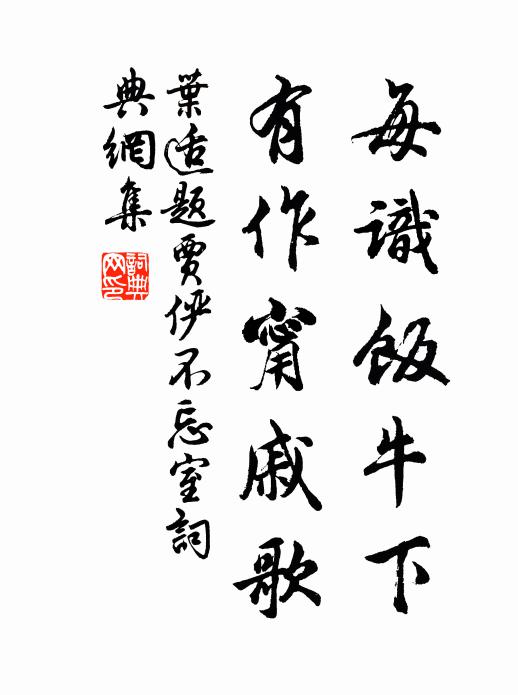 每識飯牛下
有作甯戚歌
葉適題賈俨不忘室詞
典網集
詞典網印